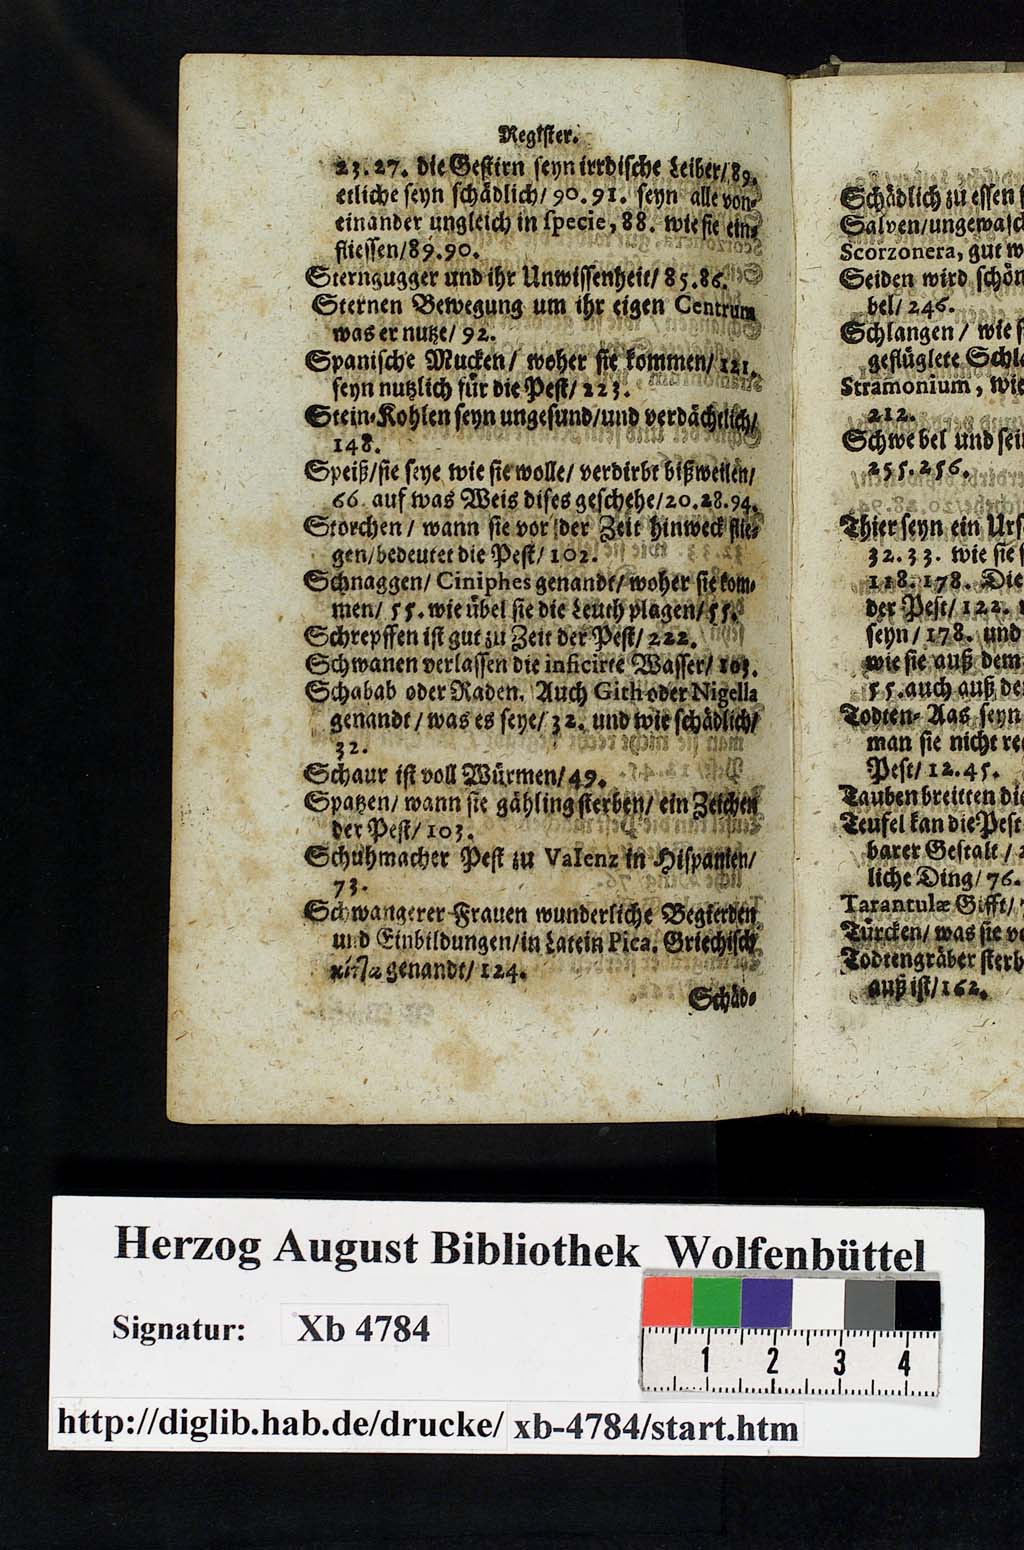 Register.
23.27. die Gestirn seyn irrdische Leiber/89.
etliche seyn schädlich/90.91. seyn alle von-
einander ungleich in specie, 88. wie sie ein-
fliessen/89.90.
Sterngugger und ihr Unwissenheit/85.86.
Sternen Bewegung um ihr eigen Centrum
was er nutze/92.
Spanische Mucken/ woher sie kommen/121.
seyn nutzlich für die Pest/223.
Stein-Kohlen seyn ungesund/und verdächtlich/
148.
Speiß/sie seye wie sie wolle/ verdirbt bißweilen/
66. auf was Weis dises geschehe/20.28.94.
Storchen/ wann sie vor der Zeit hinweck flie-
gen/bedeutet die Pest/102.
Schnaggen/ Ciniphes genandt/woher sie kom-
men/55. wie übel sie die Leuth plagen/55.
Schrepffen ist gut zu Zeit der Pest/222.
Schwanen verlassen die inficirte Wasser/103.
Schabab oder Raden. Auch Gith oder Nigella
genandt/was es seye/32. und wie schädlich/
32.
Schaur ist voll Würmen/49.
Spatzen/ wann sie gähling sterben/ ein Zeichen
der Pest/103.
Schuhmacher Pest zu Valenz in Hispanien/
73.
Schwangerer Frauen wunderliche Begierden
und Einbildungen/in Latein Pica, Griechisch
κίτ]α genandt/124.
Schäd-
Schädlich zu essen
Salven/ungewasch
Scorzonera, gut w
Seiden wird schön
bel/246.
Schlangen/ wie s
geflüglete Schla
Stramonium, wie
212.
Schwebel und sei
255.256.
Thier seyn ein Urs
32.33. wie sie s
118.178. Die
der Pest/122.
seyn/178. und
wie sie auß dem
55. auch auß de
Todten-Aas seyn
man sie nicht re
Pest/12.45.
Tauben breitten die
Teufel kan die Pest
barer Gestalt/
liche Ding/76.
Tarantulæ Gifft/
Türcken/ was sie vo
Todtengräber sterb
auß ist/162.
Herzog August Bibliothek Wolfenbüttel
Signatur: Xb 4784
1 2 3 4
http://diglib.hab.de/drucke/ xb-4784/start.htm